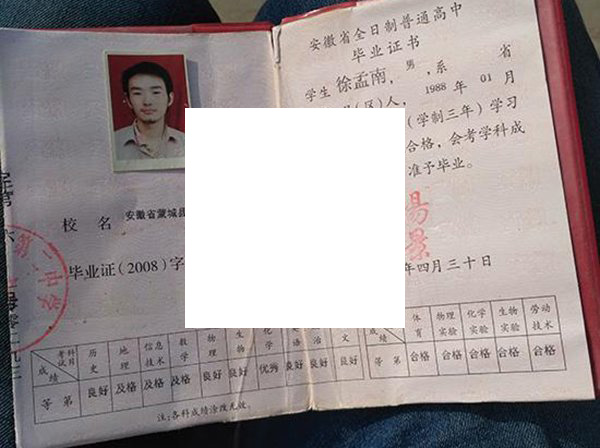 校名 安徽省蒙城县
毕业证(2008)字
科目 历史 地理 信息技术 数学 物理 生物 化学
考试
成绩
等第 良好 及格 及格 及格 良好 良好 优秀 良好 良好 良好
注:各科成绩涂改无效。
安徽省全日制普通高中
毕业证书
学生徐孟南,男,系 省
(区)人, 1988年01月
(学制三年)学习
合格,会考学科成
准予毕业。
年四月三十日
成绩 体育 物理实验 化学实验 生物实验 劳动技术
等第 合格 合格 合格 合格 合格